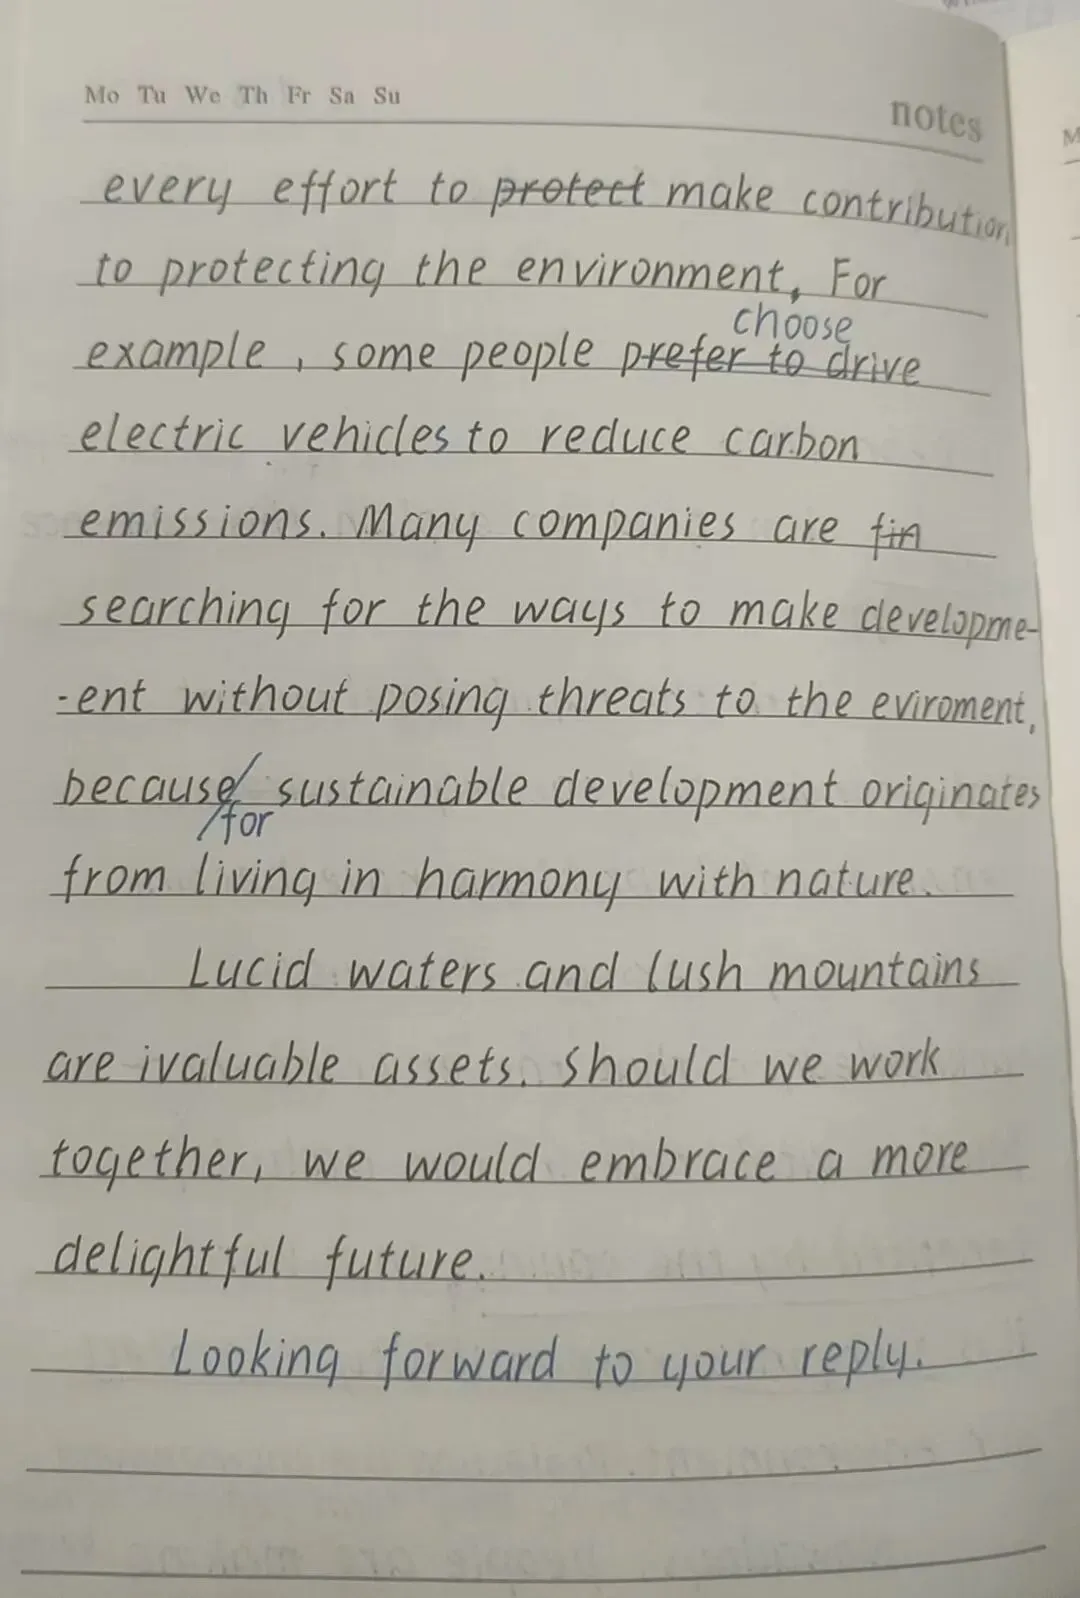 Mo Tu We Th Fr Sa Su
notes
every effort to protect make contribution
to protecting the environment. For
choose
example, some people prefer to drive
electric vehicles to reduce carbon
emissions. Many companies are fin
searching for the ways to make developme-
-ent without posing threats to the eviroment,
because sustainable development originates
for
from living in harmony with nature.
Lucid waters and lush mountains
are ivaluable assets. Should we work
together, we would embrace a more
delightful future.
Looking forward to your reply.